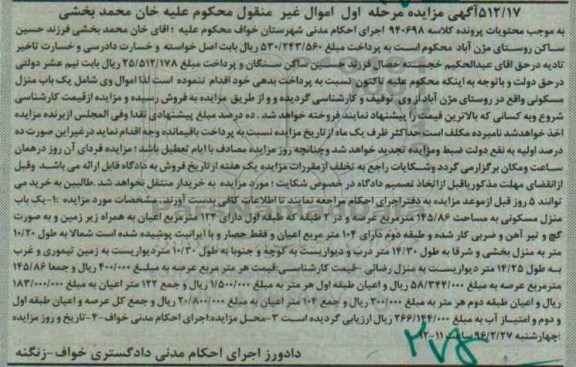 ۵۱۲/۱۷آگهی مزایده مرحله اول اموال غیر منقول محکوم علیه خان محمد بخشی
به موجب محتویات پرونده کلاسه ۹۴۰۶۹۸ اجرای احکام مدنی شهرستان خواف محکوم علیه : آقای خان محمد بخشی فرزند حسین
ساکن روستای مژن آباد محکوم است به پرداخت مبلغ ۵۳۰/۲۴۳/۵۶۰ ریال بابت اصل خواسته و خسارت دادرسی و خسارت تاخیر
تادیه درحق اقای عبدالحکیم خجسته خصال فرزند حسین ساکن سنگان و پرداخت مبلغ ۲۵/۵۱۲/۱۷۸ ریال بابت نیم عشر دولتی
درحق دولت و باتوجه به اینکه محکوم علیه تاکنون نسبت به پرداخت بدهی خود اقدام ننموده است لذا اموال وی شامل یک باب منزل
مسکونی واقع در روستای مژن آباد از وی توقیف و کارشناسی گردیده و و از طریق مزایده به فروش رسیده و مزایده ازقیمت کارشناسی
شروع وبه کسانی که بالاترین قیمت را پیشنهاد نمایند فروخته خواهد شد . ده درصد مبلغ پیشنهادی نقدا وفی المجلس ازبرنده مزایده
اخذ خواهدشد نامبرده مکلف است حداکثر ظرف یک ماه از تاریخ مزایده نسبت به پرداخت باقیمانده وجه اقدام نماید درغیر این صورت ده
درصد اولیه به نفع دولت ضبط ومزایده تجدید خواهد شد وچنانچه روز مزایده مصادف با ایام تعطیل باشد : مزایده فردای آن روز درهمان
ساعت ومکان برگزار می گردد وشکایات راجع به تخلف ازمقررات مزایده یک هفته از تاریخ فروش به دادگاه قابل ارائه می باشد وقبل
ازانقضای مهلت مذکور یاقبل ازاتخاذ تصمیم دادگاه در خصوص شکایت : مورد مزایده به خریدار منتقل نخواهد شد .طالبین به خرید می
توانند ۵ روز قبل ازموعد مزایده به دفتر اجرای احکام مراجعه نمایند تا اطلاعات کافی بدست آورند. مشخصات مورد مزایده :۱-یک باب
منزل مسکونی به مساحت ۱۴۵/۸۶ مترمربع عرصه و در ۲ طبقه که طبقه اول دارای ۱۲۲ مترمربع اعیان به همراه زیر زمین و به صورت
گچ و تیر آهن و ضربی کار شده و طبقه دوم دارای ۱۰۴ متر مربع اعیان و فقط حصار و با ایرانیت پوشیده شده است شمالا به طول ۱۰/۲۰
متر به منزل بخشی و شرقا به طول ۱۴/۳۰ متر درب و دیواریست به کوچه و جنوبا به طول ۱۰/۳۰ متردیواریست به زمین تیموری و غرب
به طول ۱۴/۲۵ متر دیواریست به منزل رضائی – قیمت کارشناسی:قیمت هر متر مربع عرصه به مبلغ ۴۰۰/۰۰۰ ریال و جمعا ۱۴۵/۸۶
مترمربع عرصه به مبلغ ۵۸/۳۴۴/۰۰۰ ریال و اعیان طبقه اول هر متر به مبلغ ۱/۵۰۰/۰۰۰ ریال و جمع ۱۲۲ متر اعیان به مبلغ ۱۸۳/۰۰۰/۰۰۰
ریال و اعیان طبقه دوم هر متر به مبلغ ۲۰۰/۰۰۰ ریال و جمع ۱۰۴ متر اعیان به مبلغ ۲۰/۸۰۰/۰۰۰ ریال و جمع کل عرصه و اعیان طبقه اول
و دوم و امتیاز آب به مبلغ ۲۶۶/۱۴۴/۰۰۰ ریال ارزیابی گردیده است ۳-محل مزایده:اجرای احکام مدنی خواف-۴-تاریخ و روز مزایده
:چهارشنبه ۹۶/۲/۲۷ ساعت ۱۱-۱۲
دادورز اجرای احکام مدنی دادگستری خواف-زنگنه